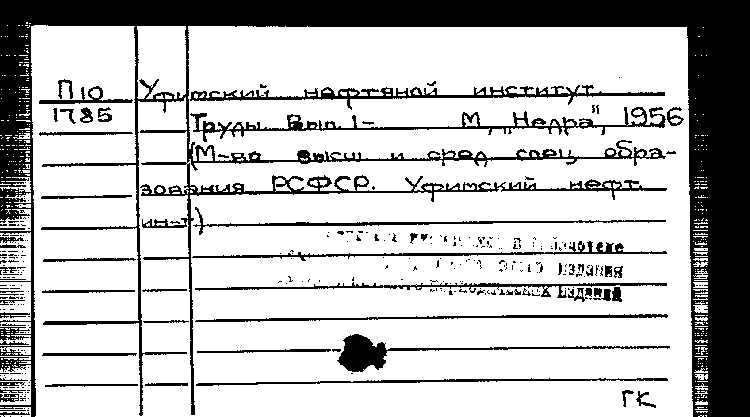 П10 Уфимский нефтяной институт.
1785 Труды. Вып. 1- М, „Недра", 1956
(М-во высш и сред спец обра-
зования РСФСР. Уфимский нефт.
ин-т)
в библиотеке
этого издания
периодических изданий
ГК